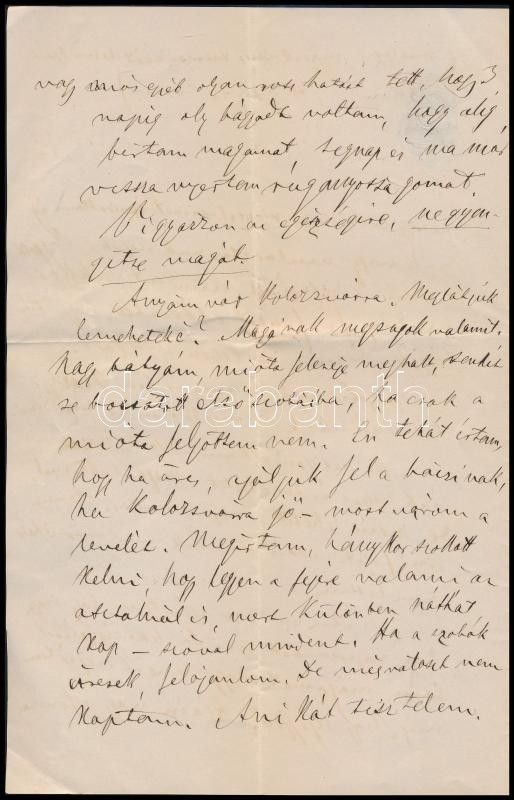 vagy más egyéb olyan rosz hatást tett, hogy 3
napig oly bágyadt voltam, hogy alig
birtam magamat, tegnap és ma már
vissza nyertem ruganyosságomat.
Vigyázzon az egészségire, ne gyen-
gitse magát.
Anyám vár Kolozsvárra. Meglátjuk
lemehetek é? Magának megsúgok valamit.
Nagybátyám, mióta felesége meghalt, senkit
se bocsátott
szobáiba, ha csak a
mióta feljöttem nem. Én tehát irtam,
hogy ha üres, ajáljuk fel a bácsinak,
ha Kolozsvárra jö – most várom a
levelét. Megirtam, hánykor szokott
kelni, hogy legyen a fejire valami az
asztalnál is, mert különben náthát
kap – szóval mindent. Ha a szobák
üresek, felajánlom. De még választ nem
kaptam.
tisztelem.
darabanth